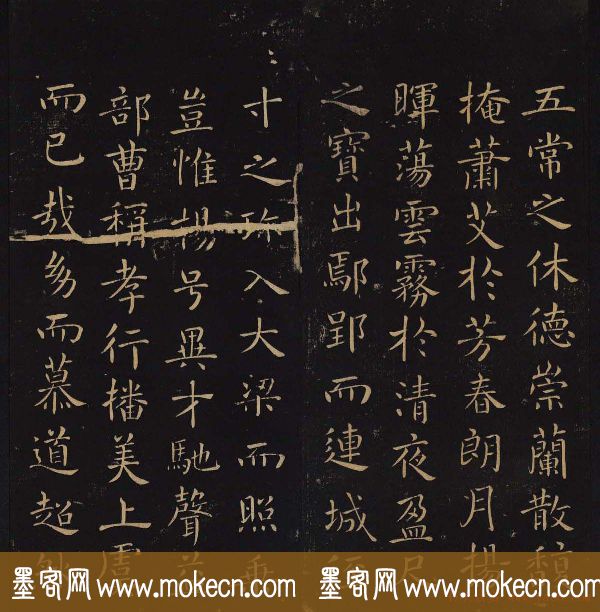 五常之休德崇蘭散馥
掩蕭艾於芳春朗月揚
暉蕩雲霧於清夜盈尺
之寶出鄢郢而連城
寸之珍入大梁而照乘
豈惟楊号異才馳聲
部曹稱孝行播美上虞
而已哉幼而慕道超
墨客网 www.mokecn.com 墨客网 www.mokecn.com